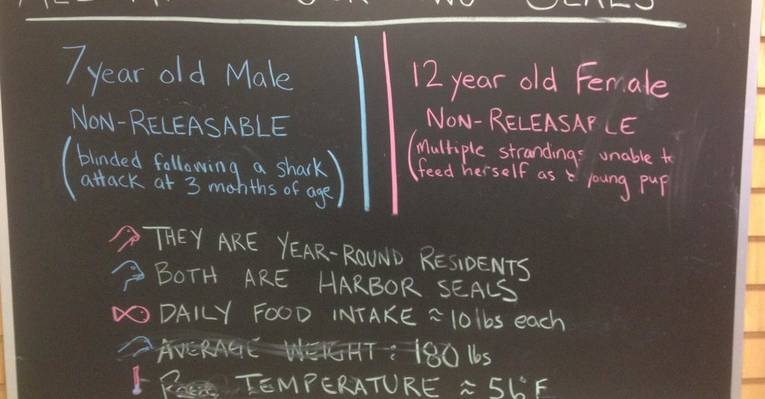 7 year old Male
NON-RELEASABLE
(blinded following a shark
attack at 3 months of age)
12 year old Female
NON-RELEASABLE
(Multiple strandings unable to
feed herself as a young pup
THEY ARE YEAR-ROUND RESIDENTS
BOTH ARE HARBOR SEALS
DAILY FOOD INTAKE ≈ 10 lbs each
AVERAGE WEIGHT: 180 lbs
TEMPERATURE ≈ 56°F